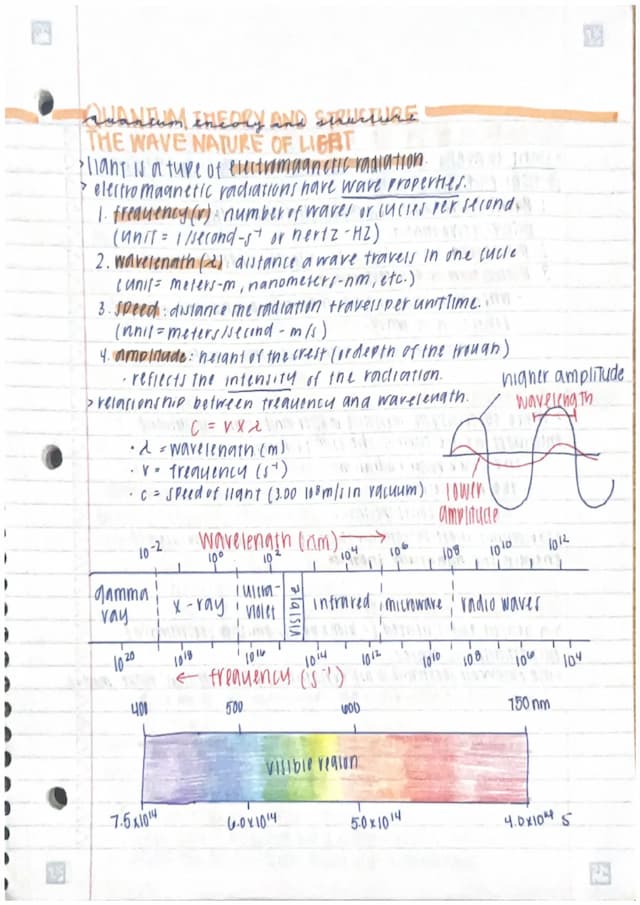 QUANTUM THEORY AND STRUCTURE
quantum theory and structure
THE WAVE NATURE OF LIGHT
> light is a type of electromagnetic radiation.
> electromagnetic radiations have wave properties.
1. frequency (v) number of waves or cycles per second.
(unit = 1/second-s⁻¹ or hertz-HZ)
2. wavelength (λ) distance a wave travels in one cycle
(unit= meters-m, nanometers-nm, etc.)
3. speed: distance the radiation travels per unit time.
(unit=meters/second - m/s)
4. amplitude: height of the crest (or depth of the trough)
· reflects the intensity of the radiation.
higher amplitude
> relationship between frequency and wavelength.
wavelength
C = v x λ
· λ = wavelength (m)
· v = frequency (s⁻¹)
· c = speed of light (3.00 10⁸ m/s in vacuum)
lower
amplitude
wavelength (nm) →
10⁻² 10⁰ 10² 10⁴ 10⁶ 10⁸ 10¹⁰ 10¹²
gamma ray x-ray ultra-violet visible infrared microwave radio waves
10²⁰ 10¹⁸ 10¹⁶ 10¹⁴ 10¹² 10¹⁰ 10⁸ 10⁶ 10⁴
← frequency (s⁻¹)
400 500 600 750 nm
visible region
7.5x10¹⁴ 6.0x10¹⁴ 5.0x10¹⁴ 4.0x10¹⁴ s